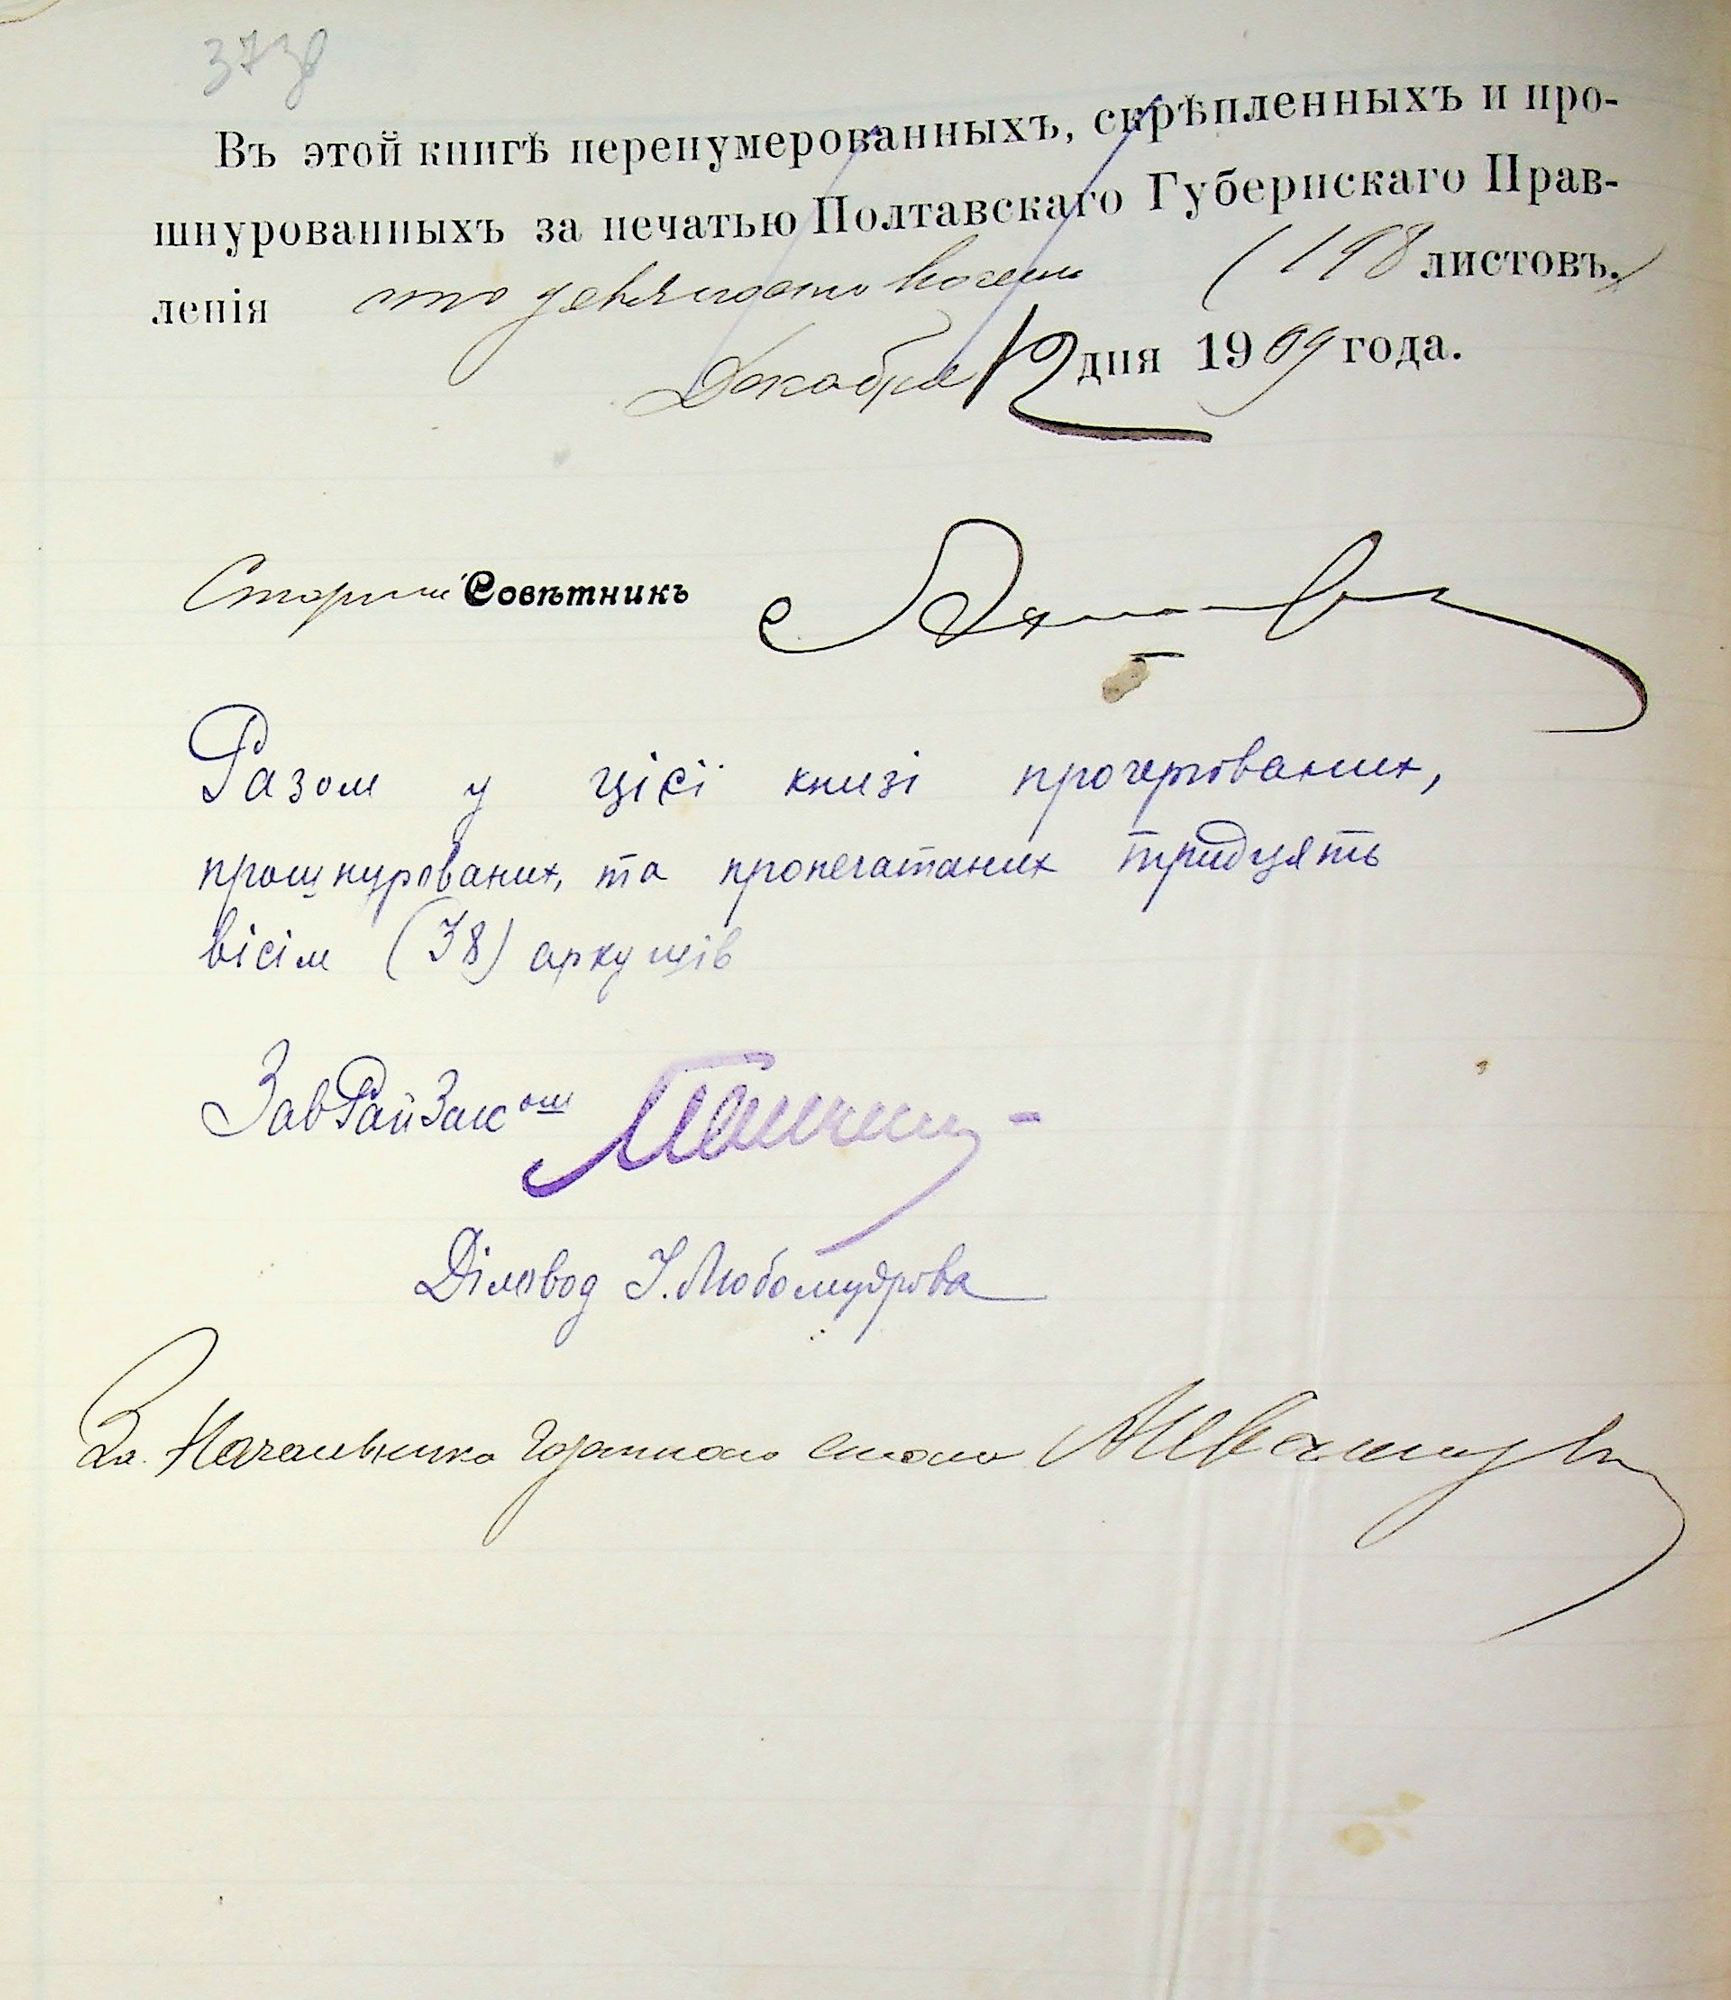 Въ этой книгѣ перенумерованныхъ, скрѣпленныхъ и про-
шнурованныхъ за печатью Полтавскаго Губернскаго Прав-
ленія сто девяносто восемь (198 листовъ.)
Декабря 12 дня 1909 года.
Старший Совѣтникъ
Разом у цієї книзі
прошнурованих, та пропечатаних тридцять
вісім (38) аркушів
ЗавРайЗаг
Діловод І. Любомудрова
За Начальника стола